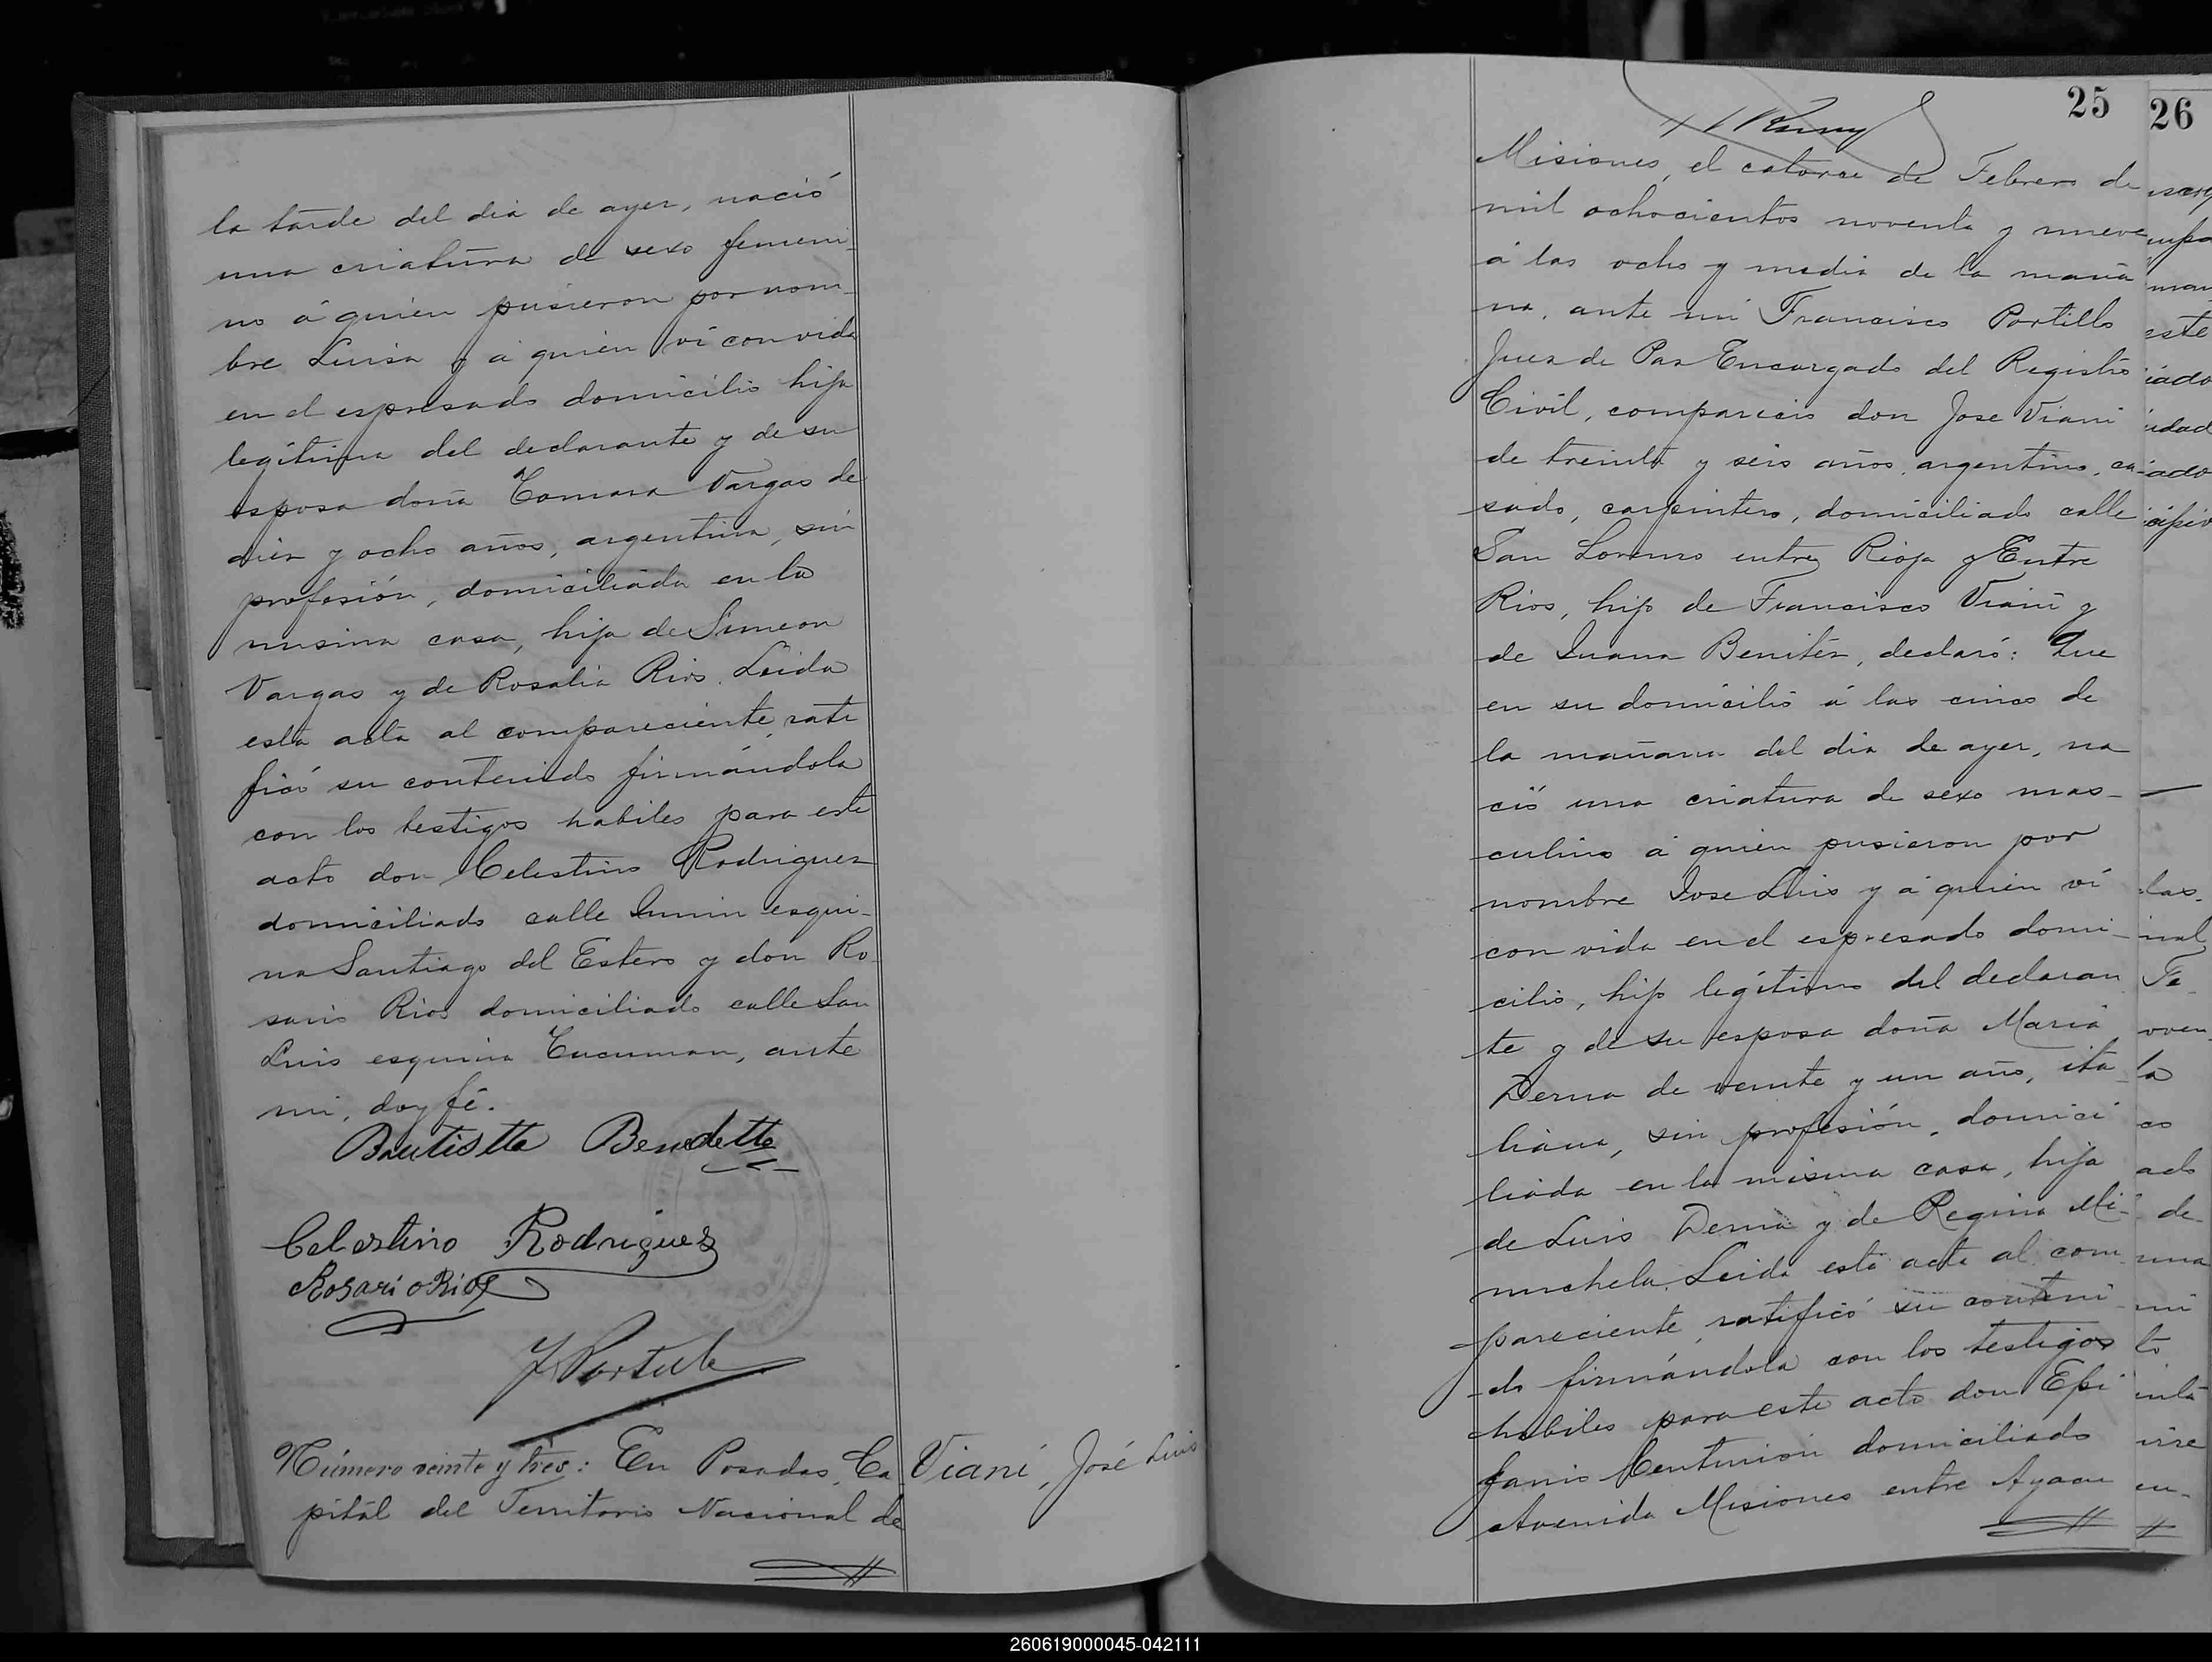 la tarde del dia de ayer, nació
una criatura de sexo femeni-
no á quien pusieron por nom-
bre Luisa y á quien ví con vida
en el espresado domicilio hija
legítima del declarante y de su
esposa doña Tomasa Vargas de
diez y ocho años, argentina, sin
profesión, domiciliada en la
misma casa, hija de Simeon
Vargas y de Rosalia Rios. Leida
esta acta al compareciente, rati
ficó su contenido firmándola
con los testigos habiles para este
acto don Celestino Rodriguez
domiciliado calle Junin esqui-
na Santiago del Estero y don Ro-
sario Rios domiciliado calle San
Luis esquina Tucuman, ante
mi, doy fé.
Bautista Benedetto
Celestino Rodriguez
Rosario Rios
F Portillo
Número veinte y tres: En Posadas, Ca
pital del Territorio Nacional de
Viani, José Luis
25
Misiones, el catorce de Febrero de
mil ochocientos noventa y nueve
á las ocho y media de la maña
na, ante mi Francisco Portillo
Juez de Paz Encargado del Registro
Civil, compareció don Jose Viani
de treinta y seis años, argentino, ca-
sado, carpintero, domiciliado calle
San Lorenzo entre Rioja y Entre
Rios, hijo de Francisco Viani y
de Juana Benitez, declaró: Que
en su domicilio á las cinco de
la mañana del dia de ayer, na
ció una criatura de sexo mas-
culino á quien pusieron por
nombre Jose Luis y á quien ví
con vida en el espresado domi-
cilio, hijo legítimo del declaran
te y de su esposa doña Maria
Derna de veinte y un año, ita
liana, sin profesión, domici
liada en la misma casa, hija
de Luis Derna y de Regina Mi-
nuchela. Leida esta acta al com
pareciente, ratificó su conteni
do firmándola con los testigos
habiles para este acto don Epi
fanio Centurion domiciliado
Avenida Misiones entre Ayacu
26
este
iado
idad
ado
las
Fe
la
co
ado
de
una
mi
to
en-
260619000045-042111